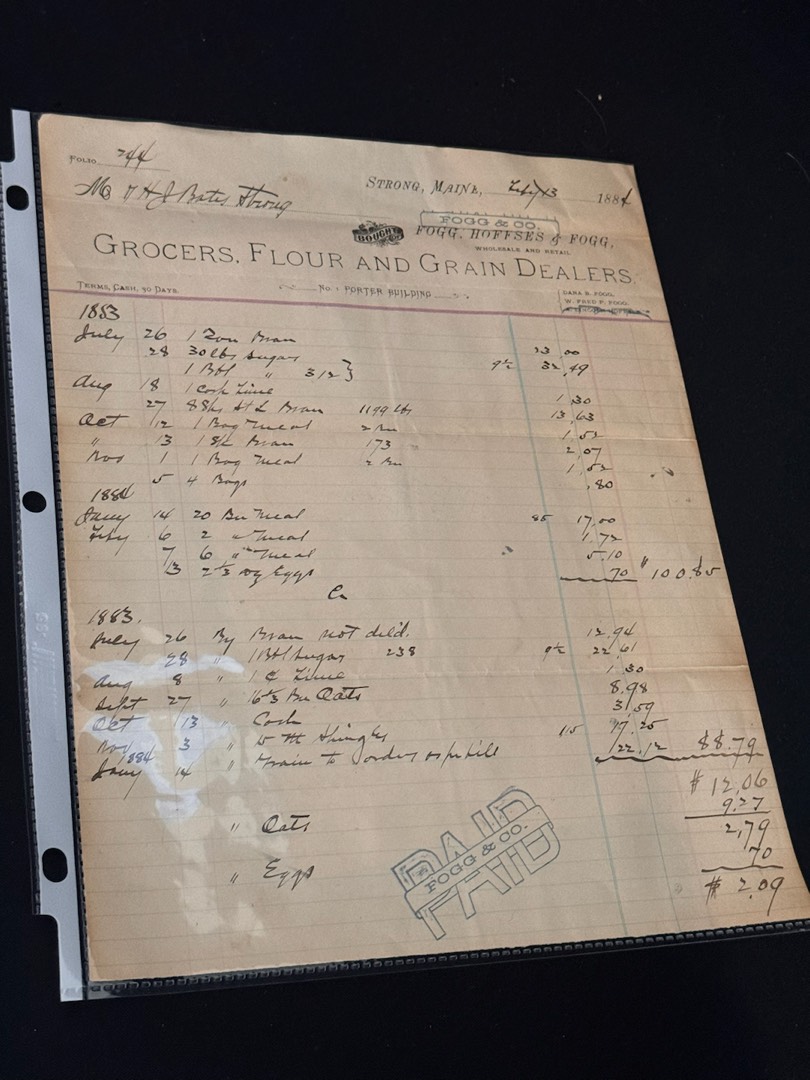 FOLIO 244
STRONG, MAINE, Feby 13 1884
M H J Bates Strong
FOGG & CO.
BOUGHT OF FOGG, HOFFSES & FOGG,
WHOLESALE AND RETAIL
GROCERS, FLOUR AND GRAIN DEALERS.
TERMS, CASH, 30 DAYS. No. 1 PORTER BUILDING DANA B. FOGG.
W. FRED P. FOGG.
1883
July 26 1 Ton Bran 23 00
28 30 lbs Sugar
1 Bbl " 312 } 9½ 32,49
Aug 18 1 Cask Lime 1 30
27 8 Sks St L Bran 1199 lbs 13,63
Oct 12 1 Bag Meal 2 Bu 1,52
" 13 1 Sk Bran 173 2,07
Nov 1 1 Bag Meal 2 Bu 1,52
5 4 Bags ,80
1884
Jany 14 20 Bu Meal 85 17,00
Feby 6 2 " Meal 1,72
7 6 " Meal 5,10
13 2⅓ Doz Eggs 70 " 100.85
Cr
1883.
July 26 By Bran not deld. 12,94
28 " 1 Bbl Sugar 238 9½ 22,61
Aug 8 " 1 C Lime 1 30
Sept 27 " 16⅓ Bu Oats 8,98
Oct 13 " Cash 3,59
Nov 3 " 15 M Shingles 115 17,25
1884
Jany 14 " to order as pr bill 22,12 88.79
# 12,06
9.27
" Oats 2,79
70
" Eggs # 2.09
PAID
FOGG & CO.
PAID